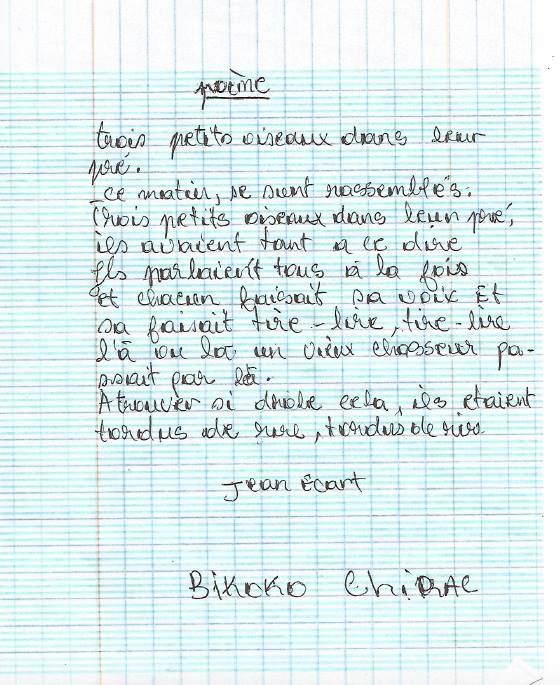 poème
trois petits oiseaux dans leur
pré.
ce matin, se sont rassemblés.
trois petits oiseaux dans leur pré,
ils avaient tant a ce dire
Ils parlaient tous à la fois
et chacun faisait sa voix Et
sa faisait tire-lire, tire-lire
l'à ou là un vieux chasseur pa-
ssait par là.
A trouver si drole cela, ils etaient
tordus de rire, tordus de rire
Jean Ecart
BIKOKO ChiRAC